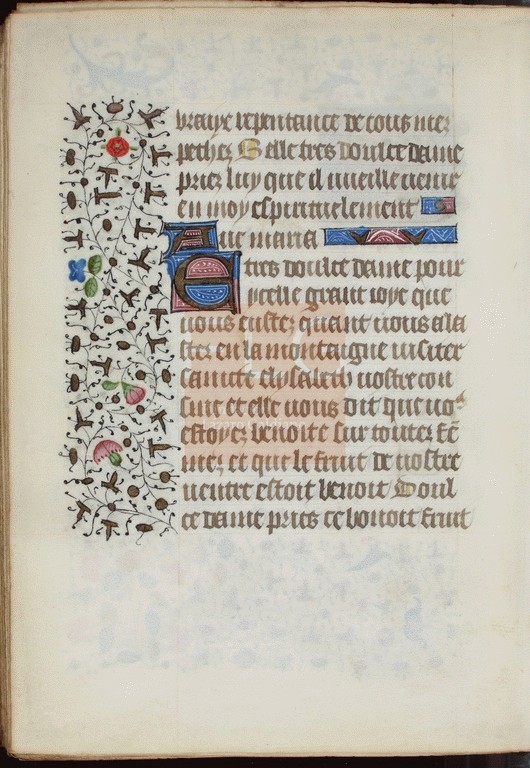 vraye repentance de tous mes
pechez Belle tres doulce dame
priez luy que il vueille venir
en moy espirituelement
Aue maria
E tres doulce dame pour
ycelle grant ioye que
vous eustez quant vous alas
stez en la montaigne visiter
saincte elysabeth vostre cou
sine et elle vous dit que vo⁹
estoyez benoite sur toutez fē
mez et que le fruit de vostre
ventre estoit benoit Doul
ce dame pries ce benoit fruit